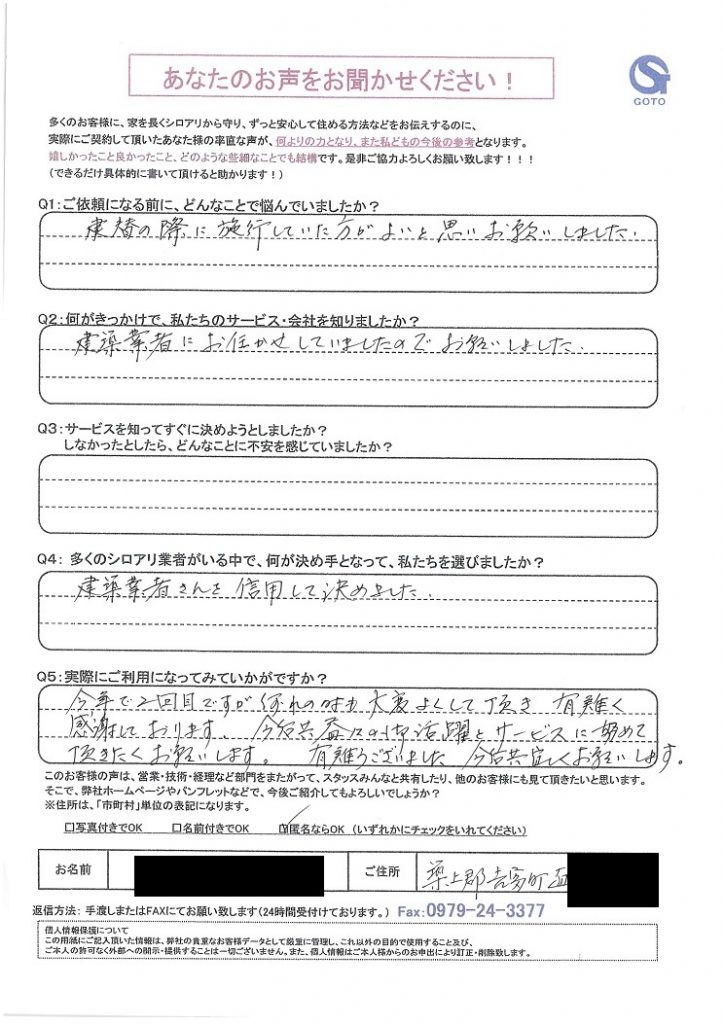 あなたのお声をお聞かせください！
GOTO
多くのお客様に、家を長くシロアリから守り、ずっと安心して住める方法などをお伝えするのに、
実際にご契約して頂いたあなた様の率直な声が、何よりの力となり、また私どもの今後の参考となります。
嬉しかったこと良かったこと、どのような些細なことでも結構です。是非ご協力よろしくお願い致します！！！
（できるだけ具体的に書いて頂けると助かります！）
Q1：ご依頼になる前に、どんなことで悩んでいましたか？
建替の際に施行していた方がよいと思いお願いしました.
Q2：何がきっかけで、私たちのサービス・会社を知りましたか？
建築業者にお任かせしていましたのでお願いしました.
Q3：サービスを知ってすぐに決めようとしましたか？
しなかったとしたら、どんなことに不安を感じていましたか？
Q4： 多くのシロアリ業者がいる中で、何が決め手となって、私たちを選びましたか？
建築業者さんを信用して決めました.
Q5：実際にご利用になってみていかがですか？
今年で2回目ですが何れの時も大変よくして頂き 有難く
感謝しております。今后共益々の御活躍とサービスに努めて
頂きたくお願いします。有難うございました 今后共宜しくお願いします。
このお客様の声は、営業・技術・経理など部門をまたがって、スタッスみんなと共有したり、他のお客様にも見て頂きたいと思います。
そこで、弊社ホームページやパンフレットなどで、今後ご紹介してもよろしいでしょうか？
※住所は、「市町村」単位の表記になります。
☐写真付きでOK ☐名前付きでOK ☑匿名ならOK （いずれかにチェックをいれてください）
お名前 ご住所 築上郡吉富町
返信方法： 手渡しまたはFAXにてお願い致します（24時間受付けております。） Fax:0979-24-3377
個人情報保護について
この用紙にご記入頂いた情報は、弊社の貴重なお客様データとして厳重に管理し、これ以外の目的で使用すること及び、
ご本人の許可なく外部への開示・提供することは一切ございません。また、個人情報はご本人様からのお申出により訂正・削除致します。